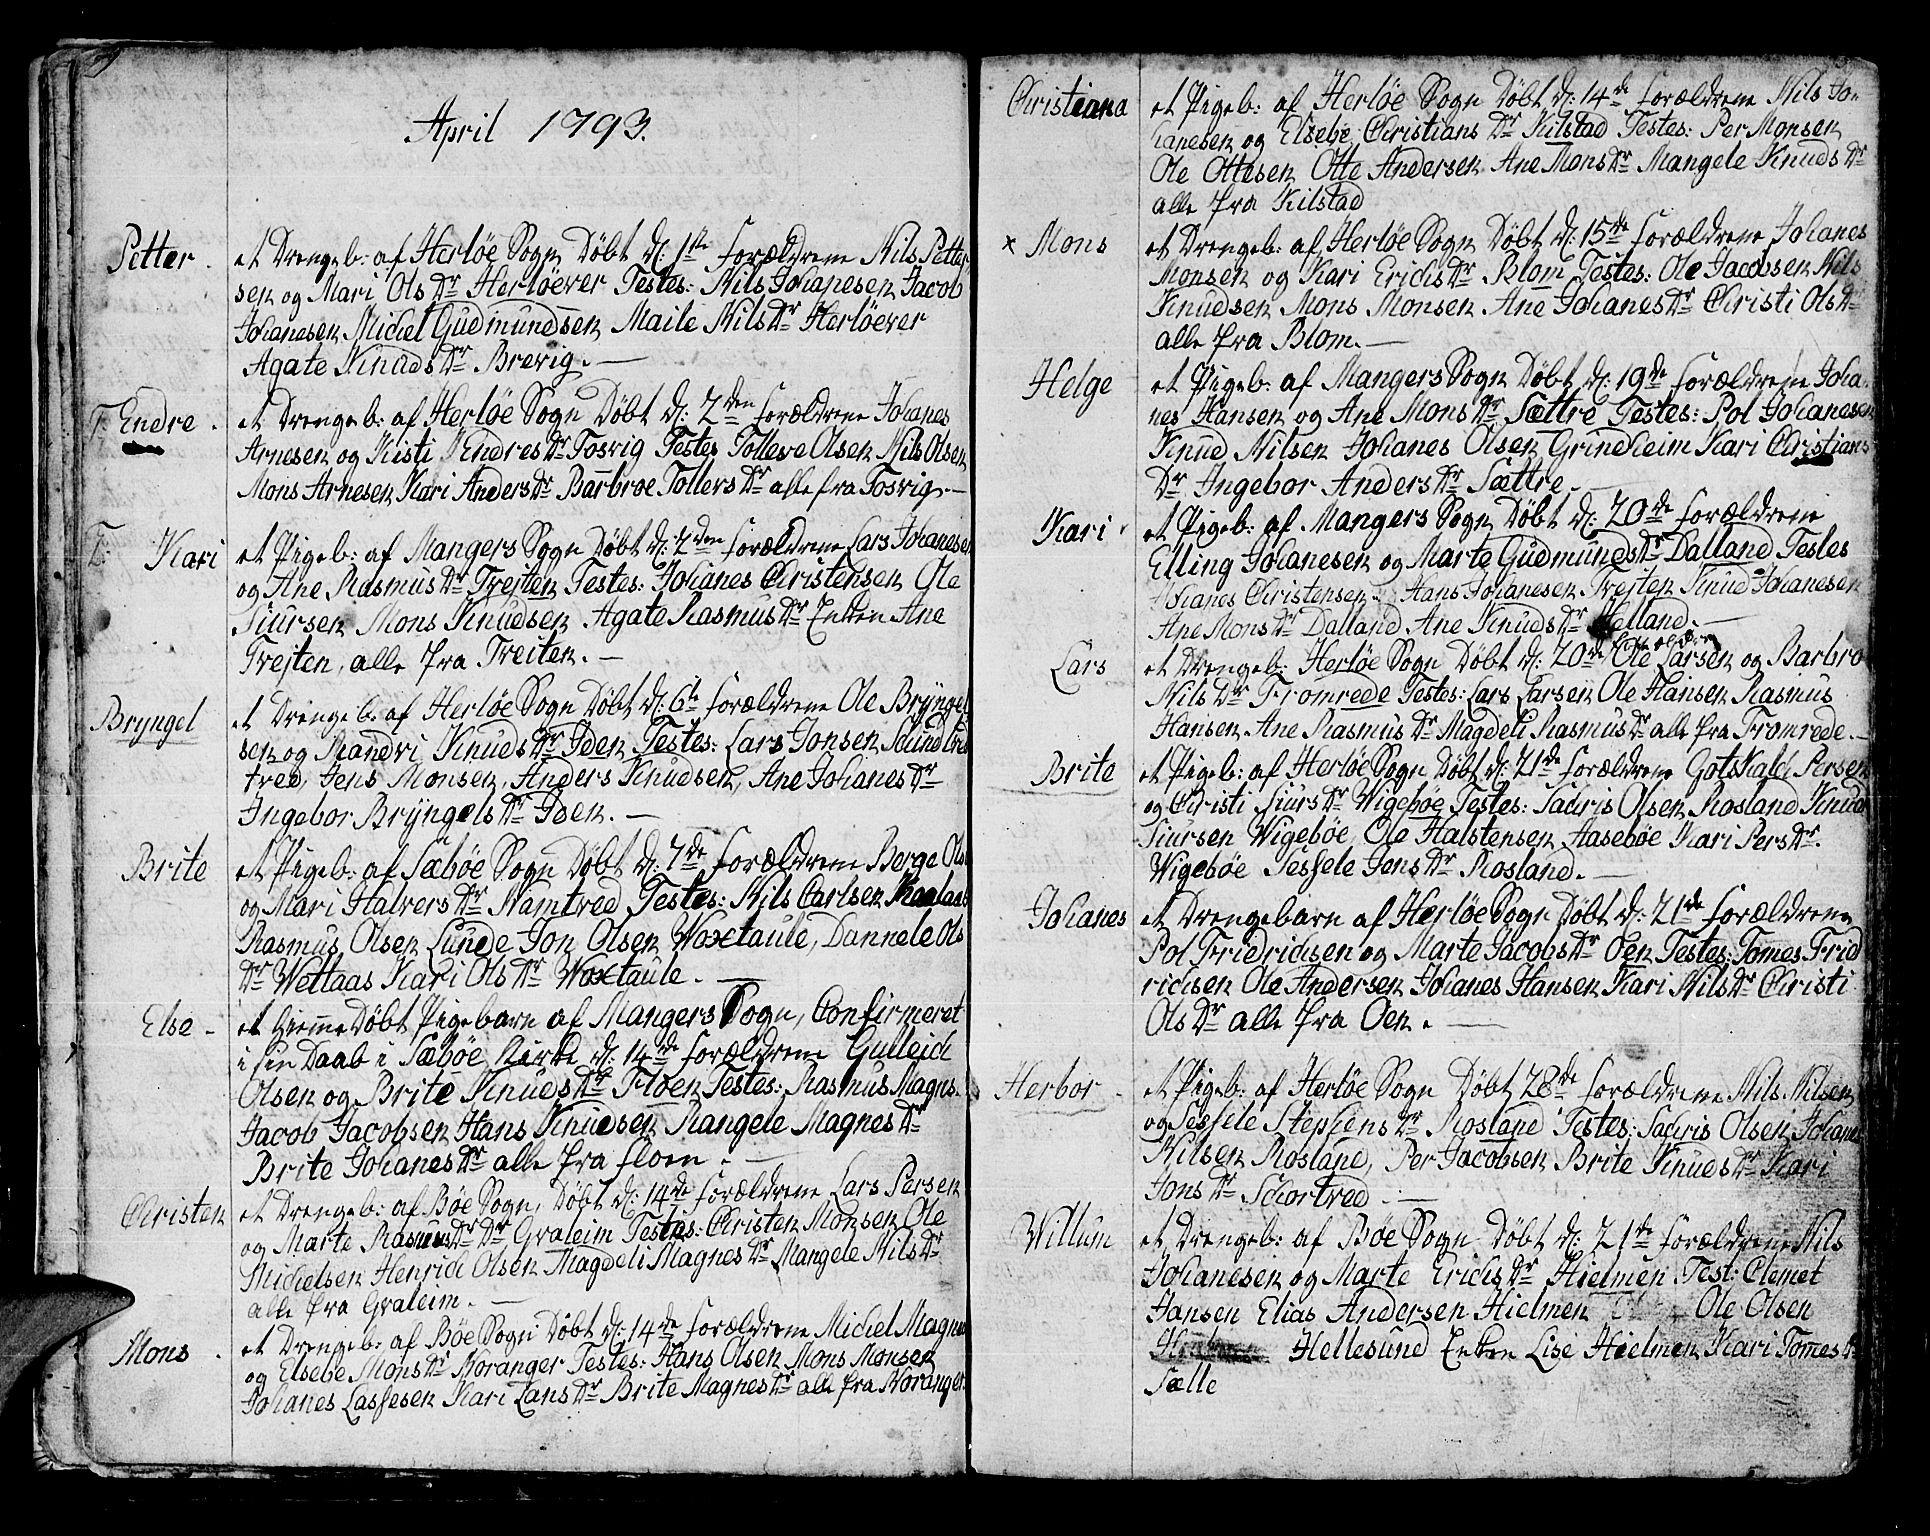 April 1793.
Petter. et Drengeb: af Herløe Sogn Døbt d: 1ste forældrene Nils Petter
sen og Mari Ols Dr Herløever Testes: Nils Johanesen Jacob
Johanesen Michel Gudmundsen Maile Nils Dr Herløever
Agate Knuds Dr Brevig. —
T: Endre. et Drengeb: af Herløe Sogn Døbt d: 2den forældrene Johanes
Arnesen og Kisti Endres Dr Tosvig Testes Tolleve Olsen Nils Olsen
Mons Arnesen Kari Anders Dr Barbroe Tollers Dr alle fra Tosvig. —
T: Kari et Pigeb: af Mangers Sogn Døbt d: 2den forældrene Lars Johanesen
og Ane Rasmus Dr Trejten Testes: Johanes Christensen Ole
Siursen Mons Knudsen Agate Rasmus Dr Enken Ane
Trejten, alle fra Treiten. —
Bryngel et Drengeb: af Herløe Sogn Døbt d: 6te forældrene Ole Bryngel
sen og Randvi Knuds Dr Iden Testes: Lars Jonsen
tred, Jens Monsen, Anders Knudsen, Ane Johanes Dr
Ingebor Bryngels Dr Iden. —
Brite et Pigeb: af Sæbøe Sogn Døbt d: 7de forældrene Berge Ols
og Mari Halvers Dr Namtved Testes: Nils Carlsen
Rasmus Olsen Lunde Jon Olsen Woxtaule, Dannele Ols
Dr Wettaas Kari Ols Dr Woxtaule. —
Else — et HiemeDøbt Pigebarn af Mangers Sogn, Confirmeret
i sin Daab i Sæbøe Kirke d: 14de forældrene Gulleich
Olsen og Brite Knuds Dr Floen Testes: Rasmus Magns.
Jacob Jacobsen Hans Knudsen Rangele Magnes Dr
Brite Johanes Dr alle fra Floen. —
Christen et Drengeb: af Bøe Sogn, Døbt d: 14de forældrene Lars Persen
og Marte Rasmus Dr Dr Graleim Testes: Christen Monsen Ole
Michelsen Henrich Olsen Magdeli Magnes Dr Mangele Nils Dr
alle fra Graleim. —
Mons. et Drengeb: af Bøe Sogn Døbt d: 14de forældrene Michel Magne
og Elsebe Mons Dr Noranger Testes: Hans Olsen Mons Monsen
Johanes Lassesen Kari Lans Dr Brite Magnes Dr alle fra Noranger.
Christiana et Pigeb: af Herløe Sogn Døbt d: 14de forældrene Nils Jo-
hanesen og Elsebe Christians Dr Kilstad Testes: Per Monsen
Ole Ottesen Otte Andersen Ane Mons Dr Mangele Knuds Dr
alle fra Kilstad
x Mons et Drengeb: af Herløe Sogn Døbt d: 15de forældrene Johanes
Monsen og Kari Erichs Dr Blom Testes: Ole Jacobsen Nils
Knudsen Mons Monsen Ane Johanes Dr Christi Ols Dr
alle fra Blom. —
Helge et Pigeb: af Mangers Sogn Døbt d: 19de forældrene Joha-
nes Hansen og Ane Mons Dr Sættre Testes: Pol Johanesen
Knud Nilsen Johanes Olsen Grindheim Kari Christians
Dr Ingebor Anders Dr Sættre. —
Kari. et Pigeb: af Mangers Sogn Døbt d: 20de forældrene
Elling Johanesen og Marte Gudmunds Dr Dalland Testes
Johanes Christensen. Hans Johanesen Trejten Knud Johanesen
Ane Mons Dr Dalland Ane Knuds Dr Helland. —
Lars et Drengeb: Herløe Sogn Døbt d: 20de forældrene Ole Larsen og Barbro
Nils Dr Fromrede Testes: Lars Larsen Ole Hansen Rasmus
Hansen Ane Rasmus Dr Magdeli Rasmus Dr alle fra Fromrede. —
Brite et Pigeb: af Herløe Sogn Døbt d: 21de forældrene Gotskalch Persen
og Christi Siurs Dr Wigebøe Testes: Sachris Olsen Rosland Knud
Siursen Wigebøe Ole Halstensen Aasebøe Kari Pers Dr.
Wigebøe Sessele Jens Dr Rosland. —
Johanes et Drengebarn af Herløe Sogn Døbt d: 21de forældrene
Pol Fridrichsen og Marte Jacobs Dr Oen Testes: Tomes Frid
richsen Ole Andersen Johanes Hansen Kari Nils Dr Christi
Ols Dr alle fra Oen. —
Herbor. et Pigeb: af Herløe Sogn Døbt 28de forældrene Nils Nilsen
og Sessele Stephens Dr Rosland Testes: Sachris Olsen Johanes
Nilsen Rosland, Per Jacobsen Brite Knuds Dr Kari
Jons Dr Schortved. —
Willum et Drengeb: af Bøe Sogn Døbt d: 21de forældrene Nils
Johanesen og Marte Erichs Dr Hielmen Test: Clemet
Jansen Elias Andersen Hielmen Ole Olsen
Hellesund Enken Lise Hielmen Kari Tomes Dr
Sælle